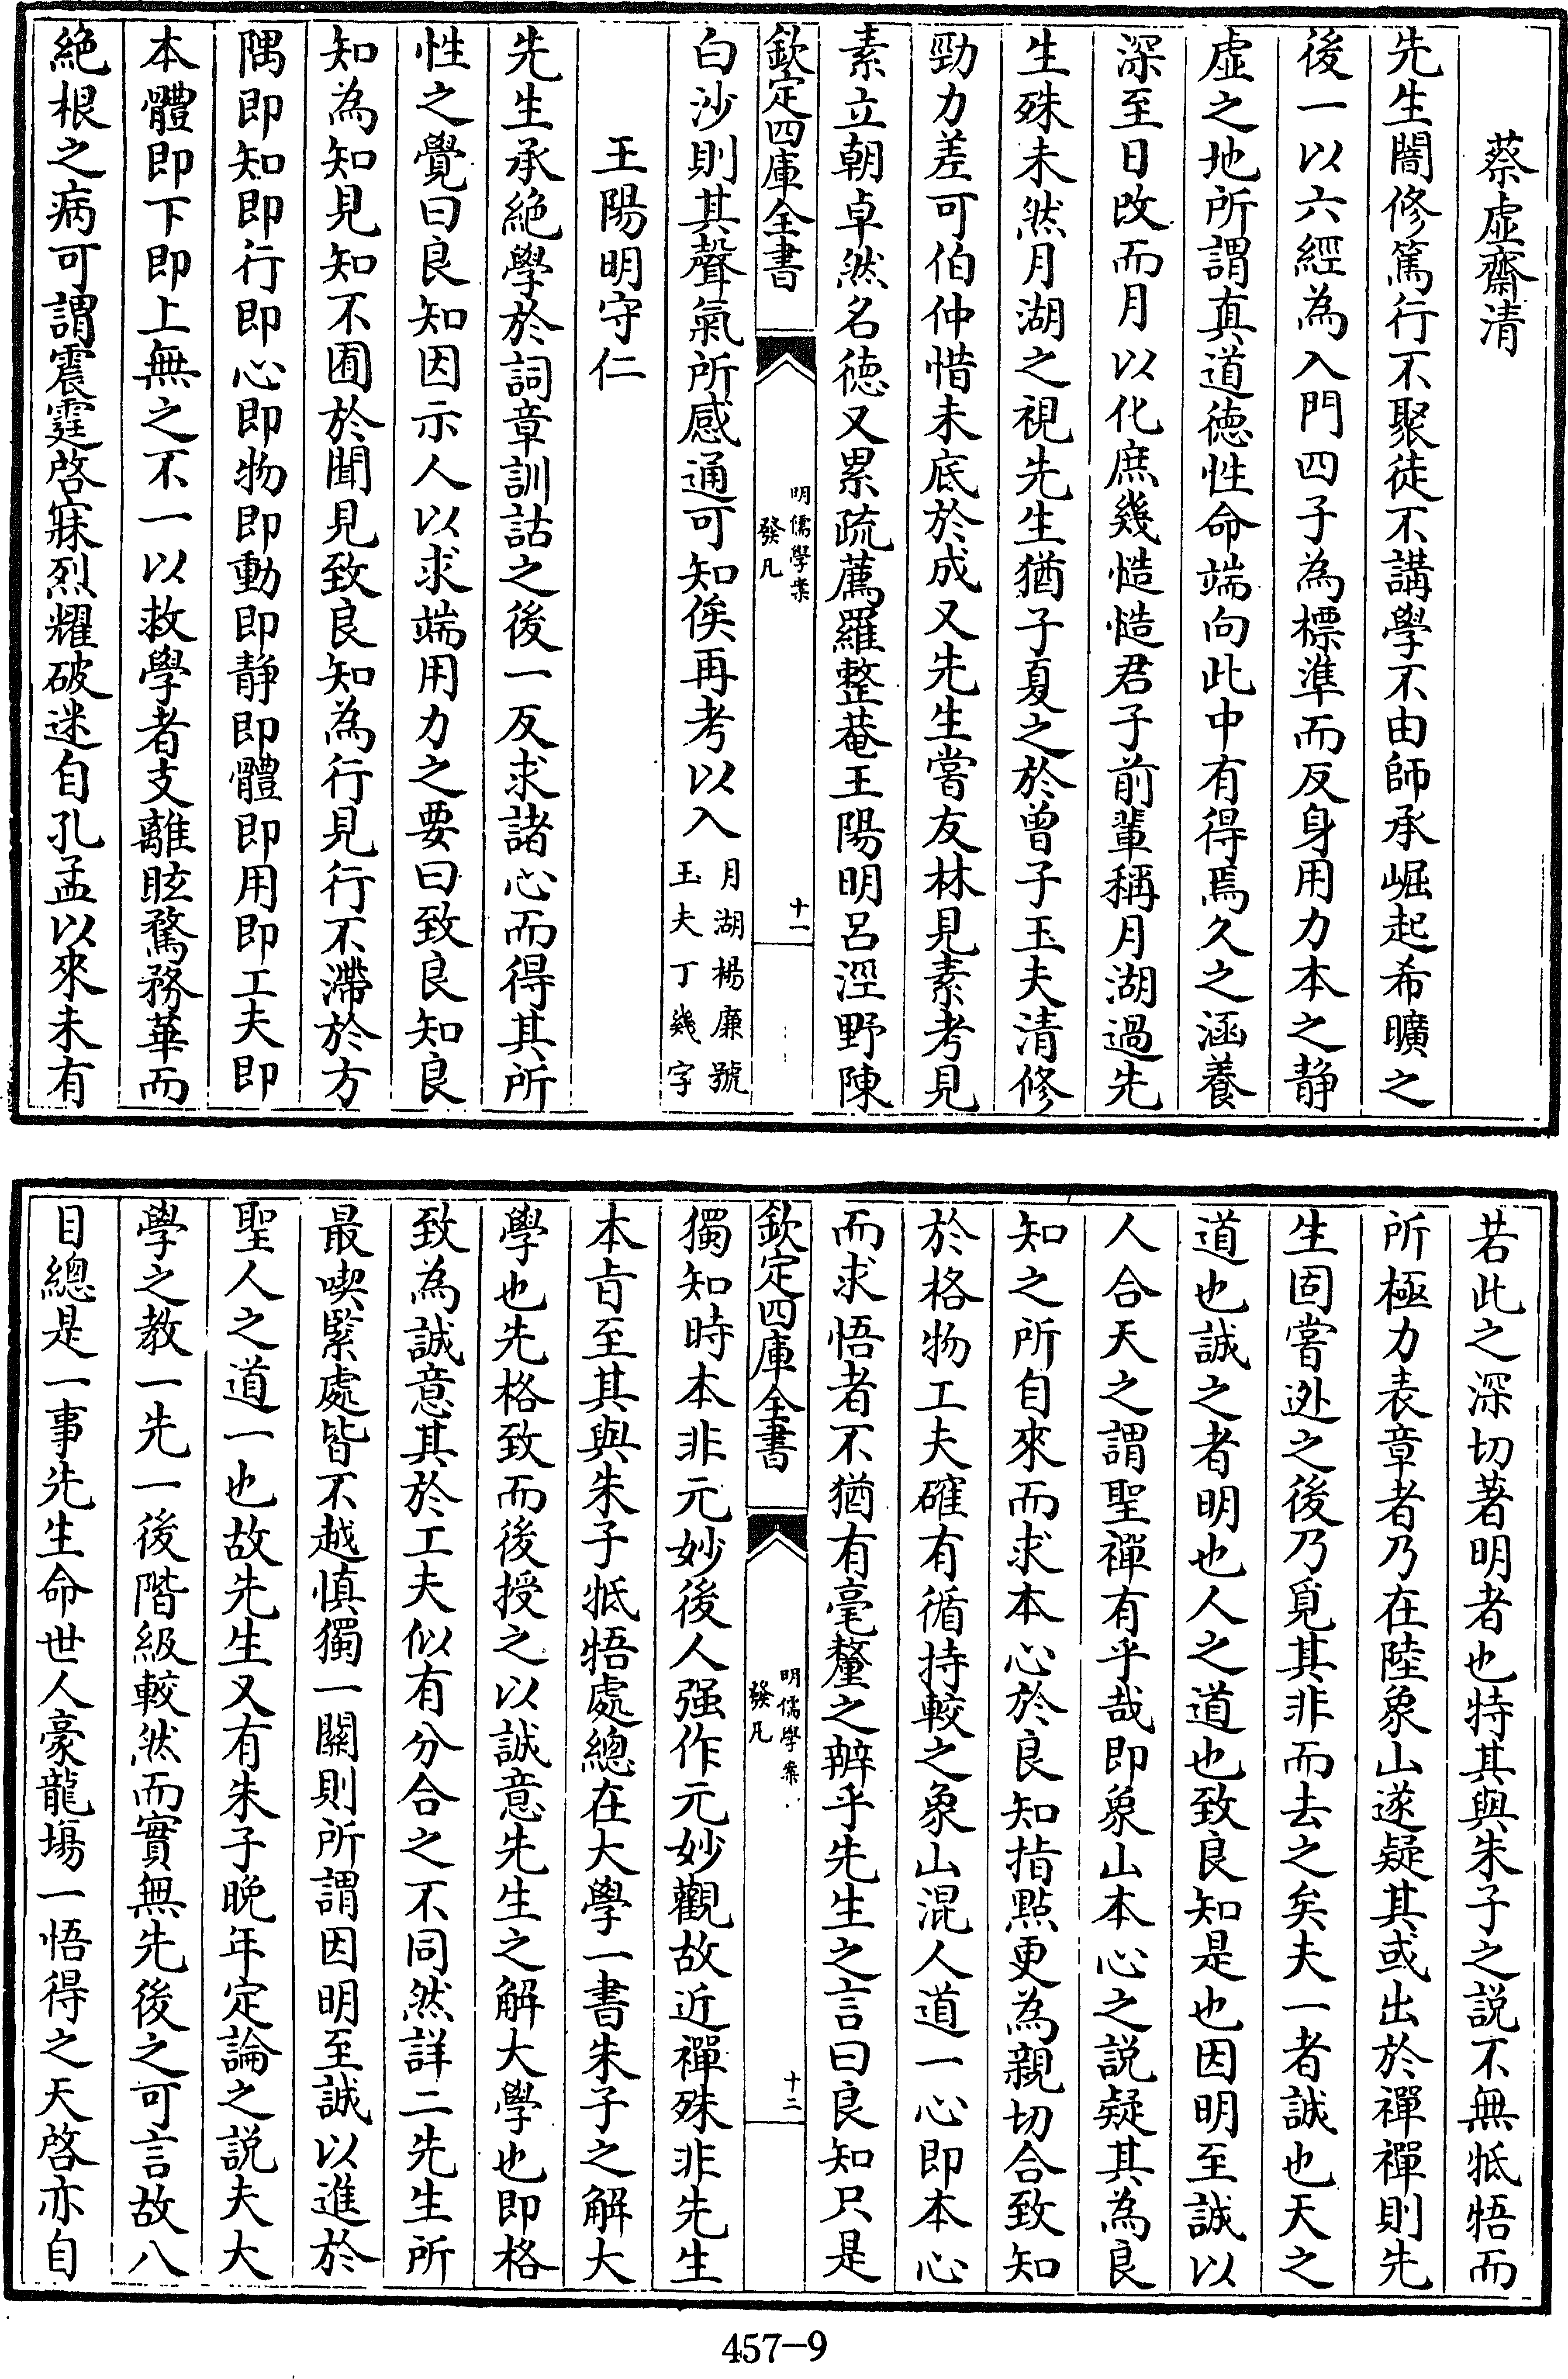 蔡虛齋清
先生闇修篤行不聚徒不講學不由師承崛起希曠之
後一以六經為入門四子為標準而反身用力本之靜
虛之地所謂真道德性命端向此中有得焉久之涵養
深至日改而月以化庶幾慥慥君子前輩稱月湖過先
生殊未然月湖之視先生猶子夏之於曾子玉夫清修
勁力差可伯仲惜未底於成又先生嘗友林見素考見
素立朝卓然名德又累疏薦羅整菴王陽明呂涇野陳
欽定四庫全書
明儒學案
發凡
十一
白沙則其聲氣所感通可知俟再考以入月湖楊廉號
玉夫丁幾字
王陽明守仁
先生承絕學於詞章訓詁之後一反求諸心而得其所
性之覺曰良知因示人以求端用力之要曰致良知良
知為知見知不囿於聞見致良知為行見行不滯於方
隅即知即行即心即物即動即靜即體即用即工夫即
本體即下即上無之不一以救學者支離眩騖務華而
絕根之病可謂震霆啓寐烈耀破迷自孔孟以來未有
若此之深切著明者也特其與朱子之說不無牴牾而
所極力表章者乃在陸象山遂疑其或出於禪禪則先
生固嘗逃之後乃覓其非而去之矣夫一者誠也天之
道也誠之者明也人之道也致良知是也因明至誠以
人合天之謂聖禪有乎哉即象山本心之說疑其為良
知之所自來而求本心於良知指點更為親切合致知
於格物工夫確有循持較之象山混人道一心即本心
而求悟者不猶有毫釐之辨乎先生之言曰良知只是
欽定四庫全書
明儒學案
發凡
十二
獨知時本非元妙後人强作元妙觀故近禪殊非先生
本旨至其與朱子牴牾處總在大學一書朱子之解大
學也先格致而後授之以誠意先生之解大學也即格
致為誠意其於工夫似有分合之不同然詳二先生所
最喫緊處皆不越慎獨一關則所謂因明至誠以進於
聖人之道一也故先生又有朱子晚年定論之說夫大
學之教一先一後階級較然而實無先後之可言故八
目總是一事先生命世人豪龍場一悟得之天啓亦自
457-9